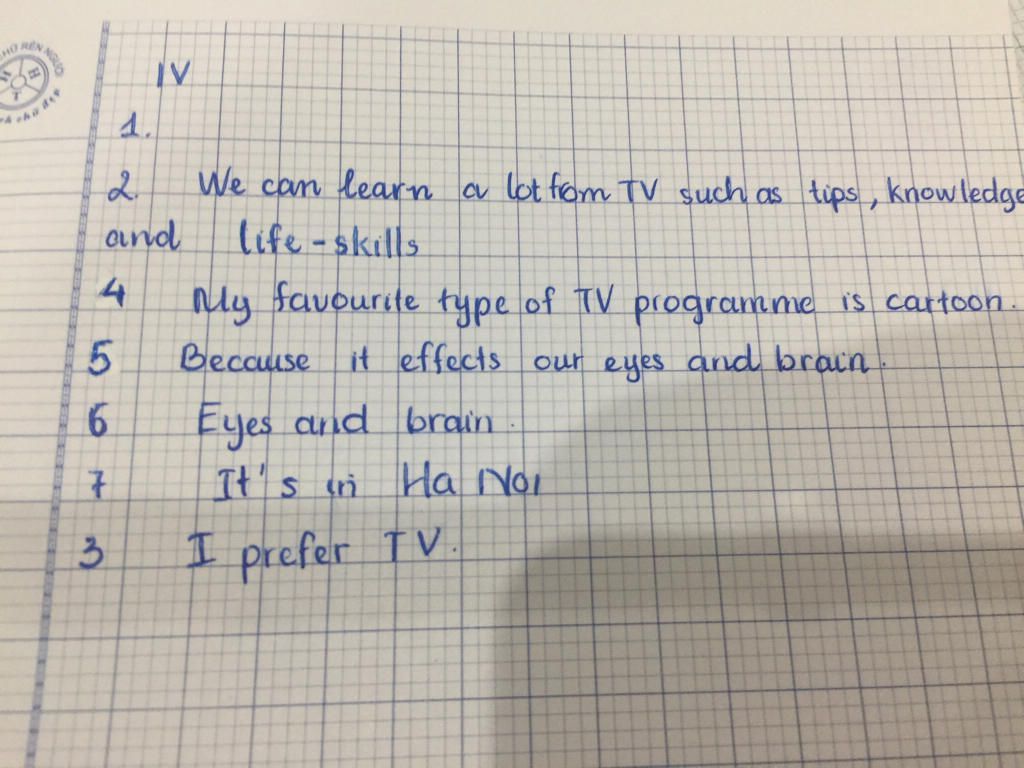 IV
1.
2. We can learn a lot fom TV such as tips, knowledge
and life-skills
4 My favourite type of TV programme is cartoon.
5 Because it effects our eyes and brain.
6 Eyes and brain.
7 It's in Ha Noi
3 I prefer TV.